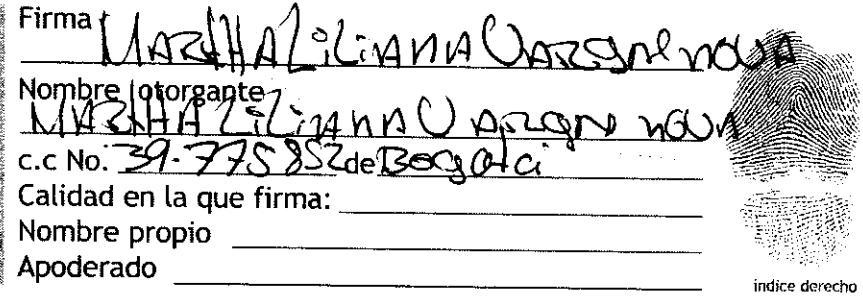 Firma MARTHA LiLiANA VARGAS NOVA
Nombre otorgante
MARTHA LiLiANA VARGAS NOVA
c.c No. 39.775852 de Bogotá
Calidad en la que firma:
Nombre propio
Apoderado
indice derecho